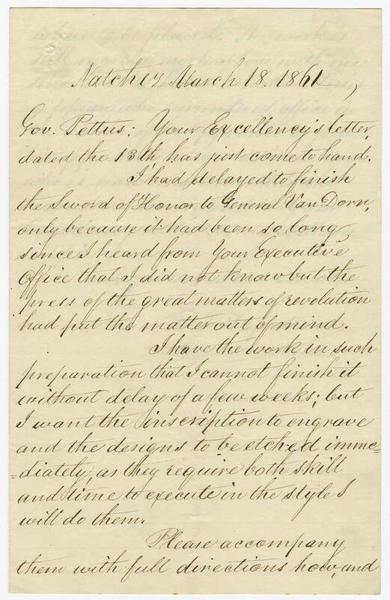 Natchez March 18. 1861,
Gov. Pettus: Your Excellency's letter,
dated the 13th, has just come to hand.
I had delayed to finish
the Sword of Honor to General Van Dorn,
only because it had been so long
since I heard from Your Executive
Office that I did not know but the
press of the great matters of revolution
had put the matter out of mind.
I have the work in such
preparation that I cannot finish it
without delay of a few weeks; but
I want the inscription to engrave
and the designs to be etched imme=
=diately, as they require both skill
and time to execute in the style I
will do them.
Please accompany
them with full directions how, and